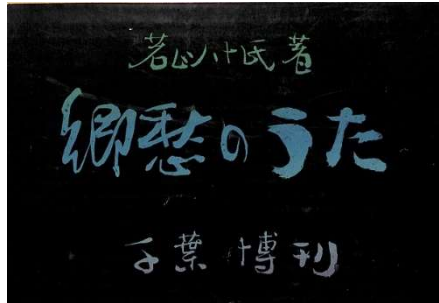 若山八十氏著
郷愁のうた
千葉博刊